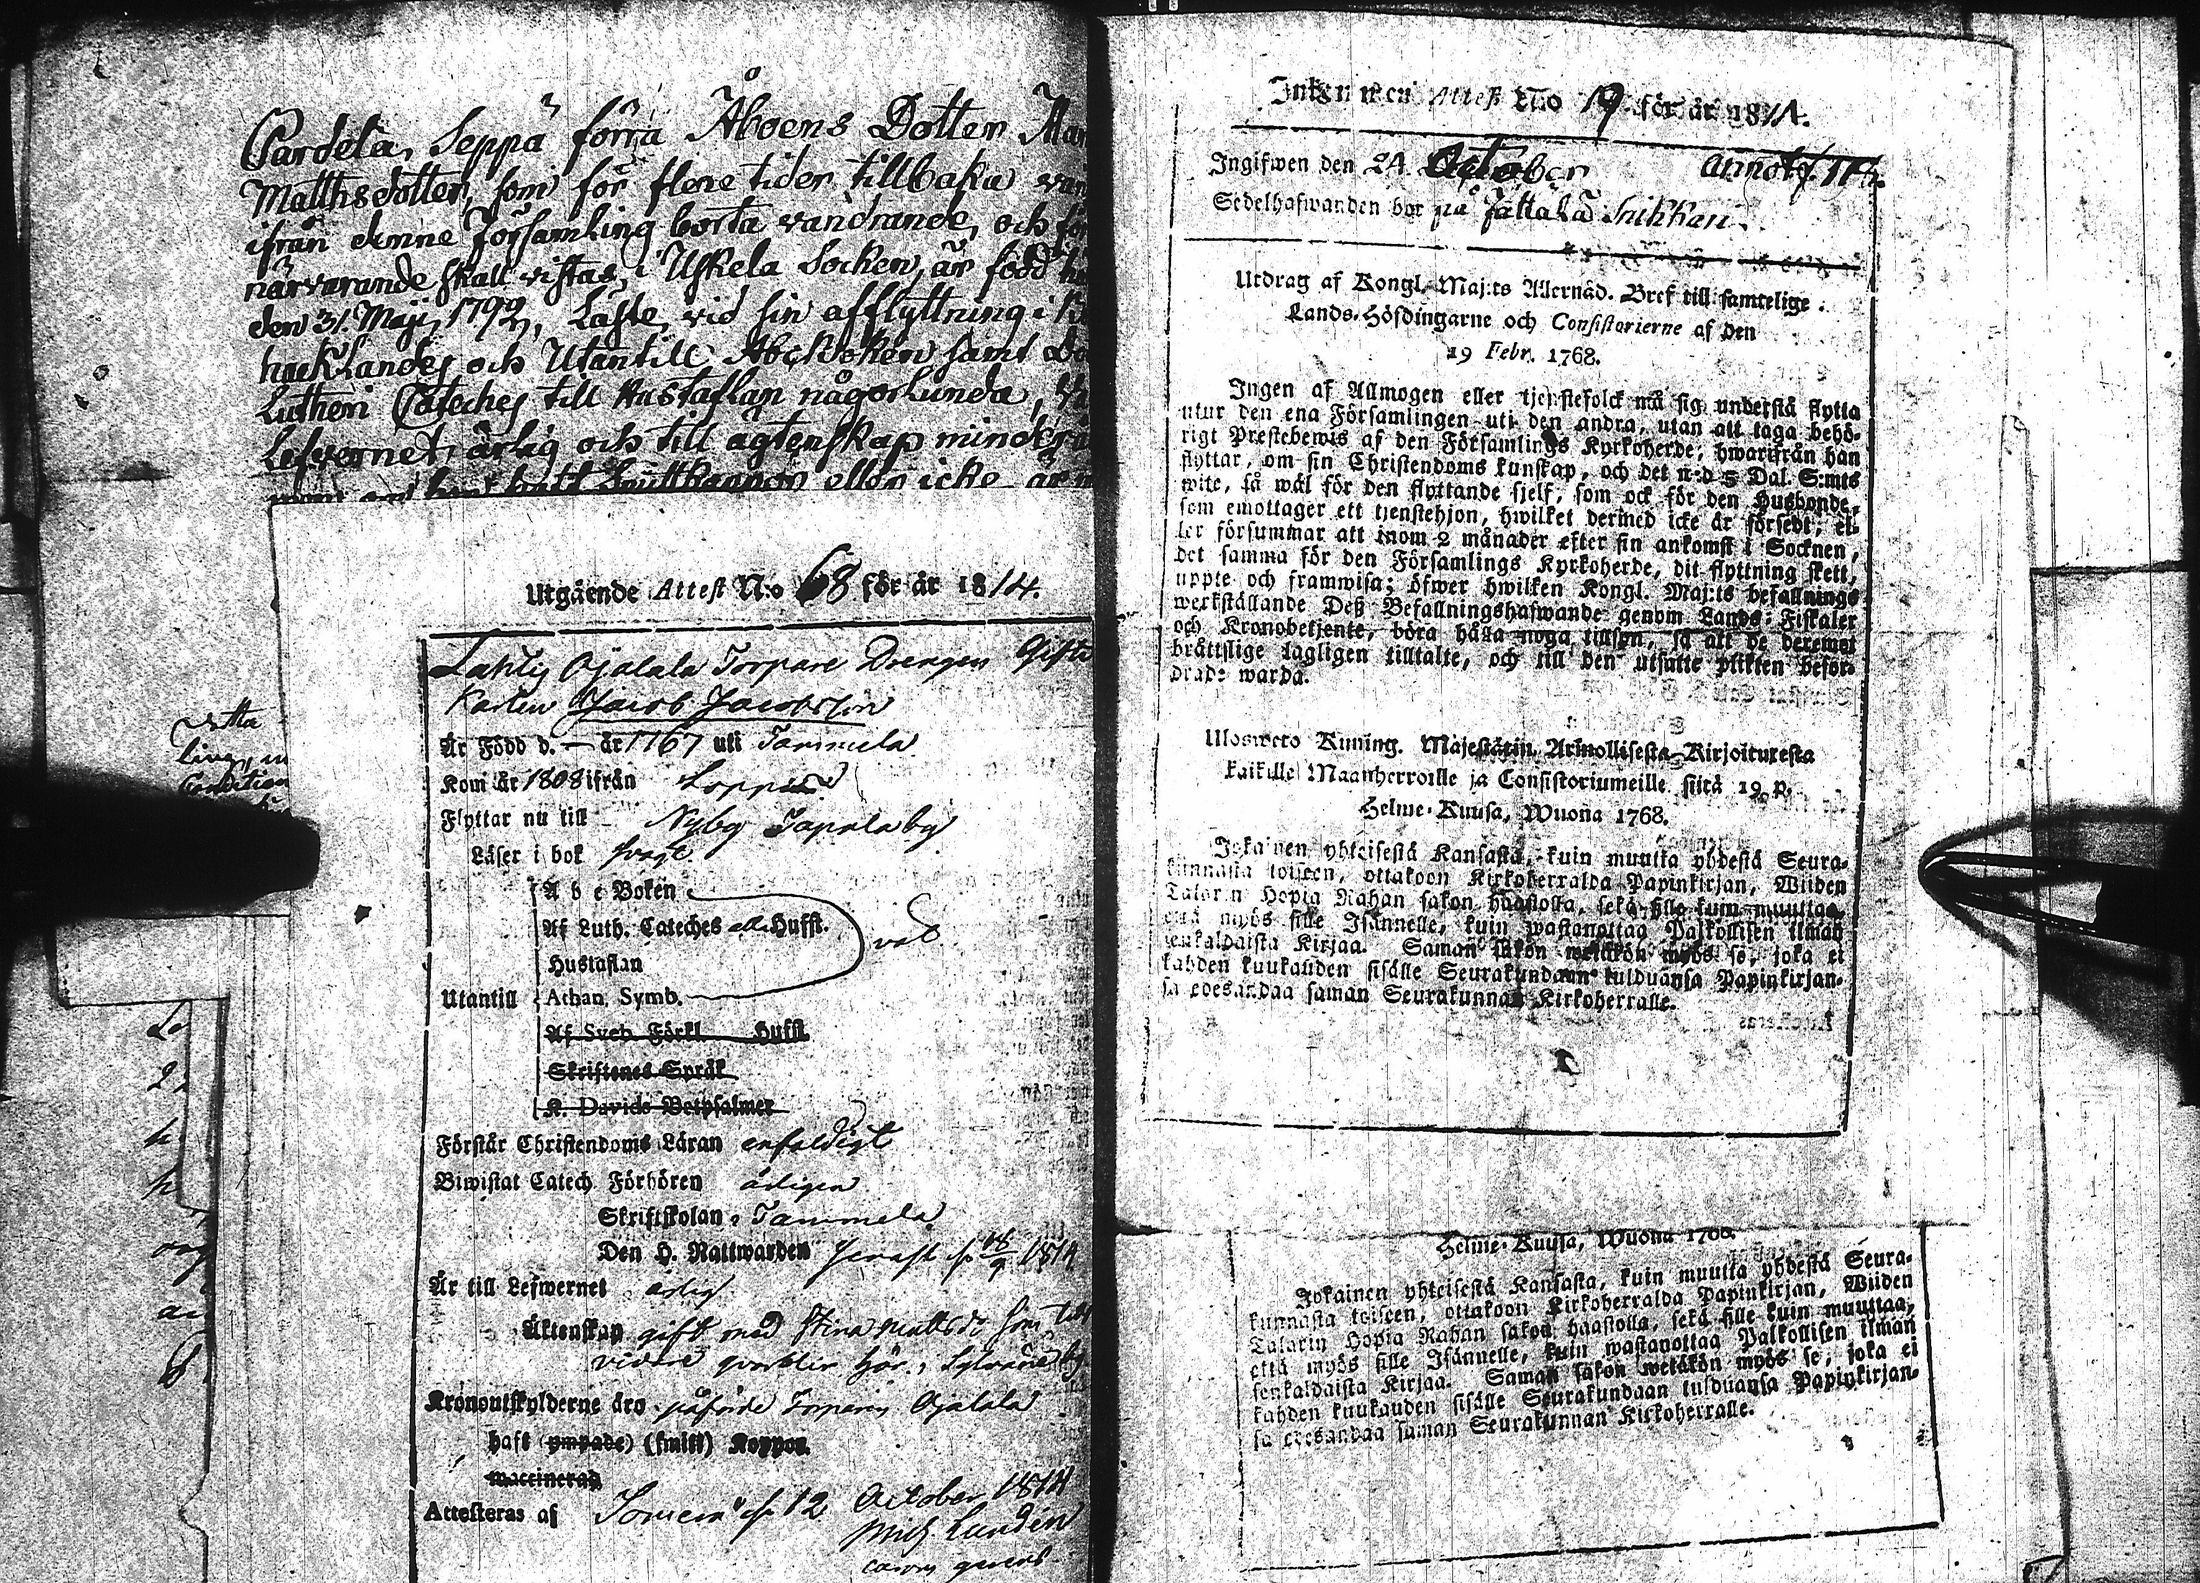 Pardela, Seppä förra Åboens Dotter Mar
Matthsdotter, som för flere tider tillbaka var
ifrån denne Församling borta vandrande, och för
närvarande skall vistas i Uskela Socken, är född
den 31. Maji 1792, Läste vid sin afflyttning i
och Utantill AbcBoken samt
Lutheri Cateches till Hustaflan någorlunda,
Lefvernet ärlig och till ägtenskap
haft Smittkoppor eller icke är
Utgående Attest N:o 68 för år 1814.
Lahtis Ojalala Torpare Drengen Gifta
Karlen Jacob Jacobsson
Är Född d. — år 1767 uti Tammela
Kom år 1808 ifrån Loppis
Flyttar nu till Nyby
Läser i bok svagt.
A b c Boken
Af Luth. Cateches alla Hufst.
väl
Hustaflan
Utantill Athan. Symb.
Af Sveb. Förkl. Hufst.
Skriftenes Språk
K. Davids Botpsalmer
Förstår Christendoms Läran enfaldigt
Biwistat Catech. Förhören årligen
Skriftskolan i Tammela
Den H. Nattwarden senast d. 18/9 1814
Är till Lefwernet ärlig
Äktenskap gift med Stina Mattsdr som
vidare
Kronoutskylderne äro påförde Ojalala
haft (ympade) (smitt) Koppor.
waccinerad
Attesteras af Somero d. 12 October 1814
Mich Lundén
Inkommen Attest N:o 19 för år 1814.
Ingifwen den 24 October
Sedelhafwanden bor på Jättälä
Utdrag af Kongl. Maj:ts Allernåd. Bref till samtelige
Lands-Höfdingarne och Consistorierne af den
19 Febr. 1768.
Ingen af Allmogen eller tjenstefolck må sig understå flytta
utur den ena Församlingen uti den andra, utan att taga behö-
rigt Prestebewis af den Församlings Kyrkoherde, hwarifrån han
flyttar, om sin Christendoms kunskap, och det wid 5 Dal. S:mts
wite, så wäl för den flyttande sjelf, som ock för den Husbonde,
som emottager ett tjenstehjon, hwilket dermed icke är försedt; el-
ler försummar att inom 2 månader efter sin ankomst i Socknen,
det samma för den Församlings Kyrkoherde, dit flyttning skett,
uppte och framwisa; öfwer hwilken Kongl. Maj:ts befallnings
werkställande Deß Befallningshafwande genom Lands-Fiskaler
och Kronobetjente, böra hålla noga tillsyn, så att de deremot
bråttslige lagligen tilltalte, och till den utsatte plikten befor-
drade warda.
Ulosweto Kuning. Majestätin Armollisesta Kirjoituresta
kaikille Maanherroille ja Consistoriumeille siitä 19 p.
Helme-Kuusa, Wuona 1768.
Jokainen yhteisestä Kansasta, kuin muutta yhdestä Seura-
kunnasta toiseen, ottakoon Kirkoherralda Papinkirjan, Wiiden
Talarin Hopia Rahan sakon haastolla, sekä sille kuin muuttaa,
että myös sille Isännelle, kuin wastanottaa Palkollisen ilman
senkaldaista Kirjaa. Saman sakon wetäkön myös se, joka ei
kahden kuukauden sisälle Seurakundaan tulduansa Papinkirjan-
sa edesandaa saman Seurakunnan Kirkoherralle.
Helme-Kuusa, Wuona 1768.
Jokainen yhteisestä Kansasta, kuin muutta yhdestä Seura-
kunnasta toiseen, ottakoon Kirkoherralda Papinkirjan, Wiiden
Talarin Hopia Rahan sakon haastolla, sekä sille kuin muuttaa,
että myös sille Isännelle, kuin wastanottaa Palkollisen ilman
senkaldaista Kirjaa. Saman sakon wetäkön myös se, joka ei
kahden kuukauden sisälle Seurakundaan tulduansa Papinkirjan-
sa edesandaa saman Seurakunnan Kirkoherralle.